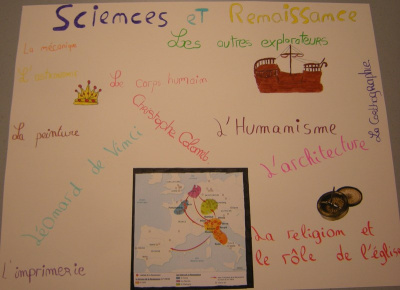 Sciences et Renaissance
Les autres explorateurs
La mécanique
L'astronomie
Le corps humain
La Carthographie
Christophe Colomb
La peinture
L'Humanisme
Léonard de Vinci
L'architecture
La religion et
le rôle de l'église
L'imprimerie